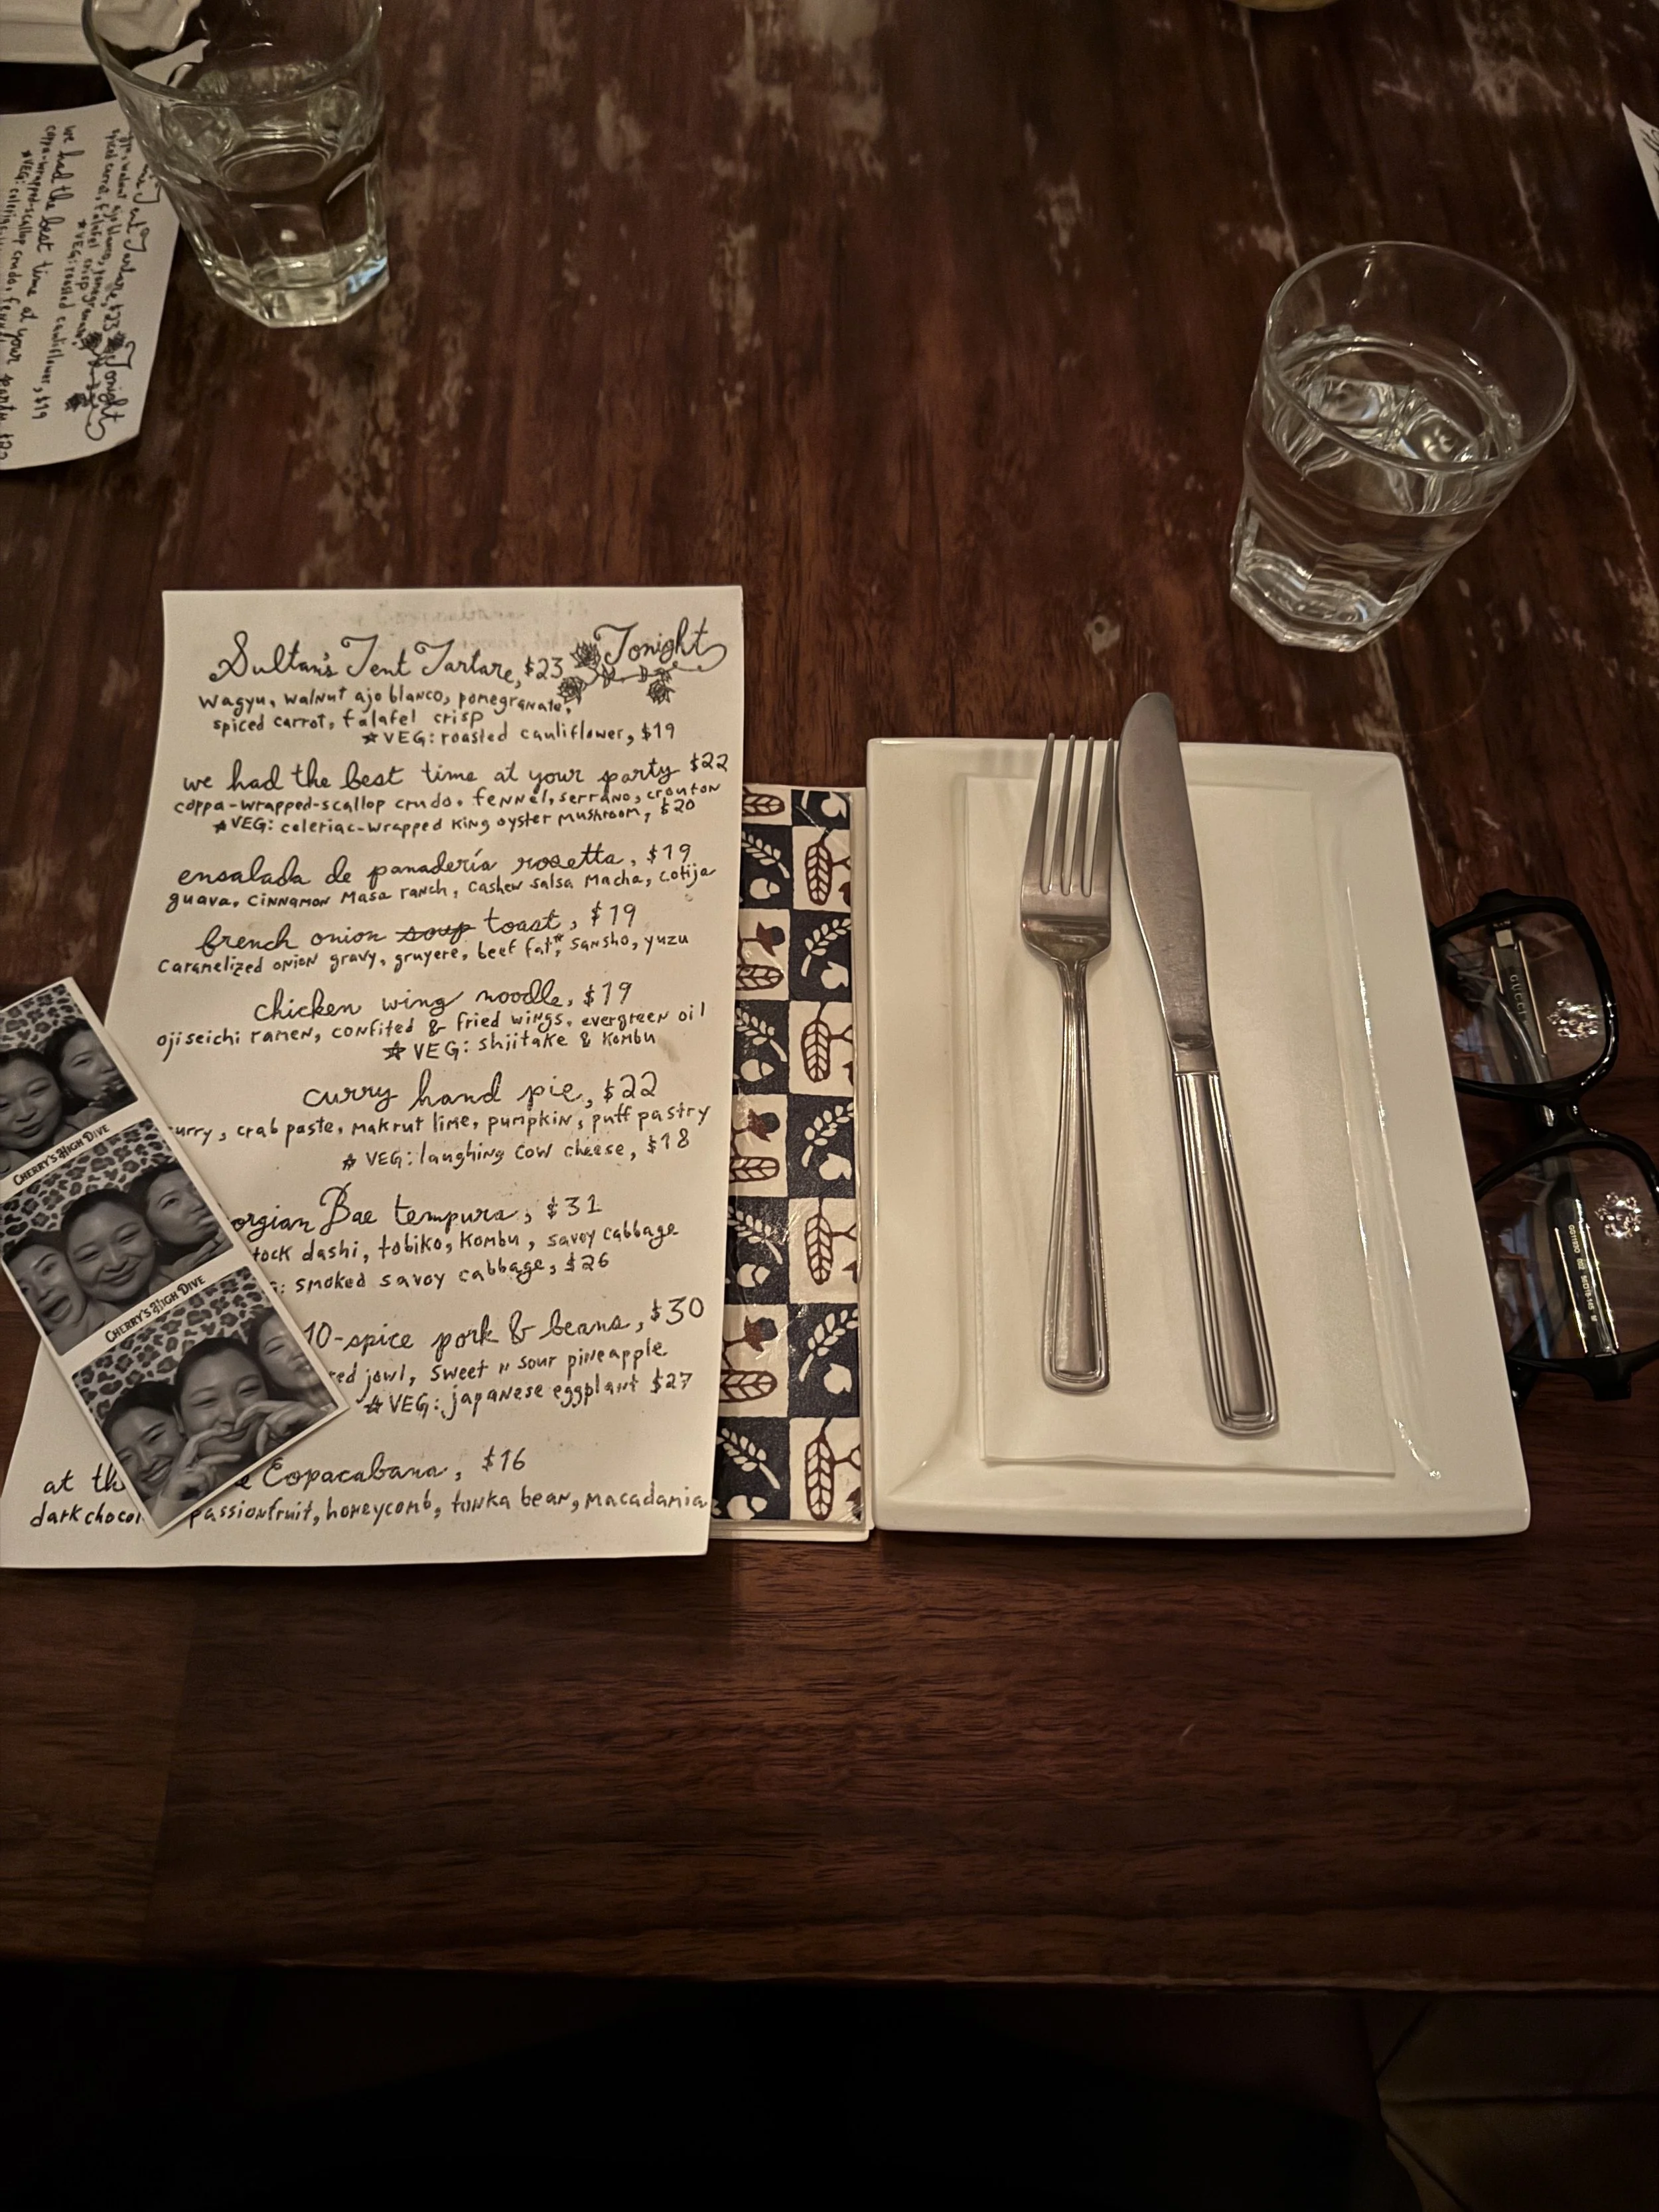 Tonight
Sultan's Tent Tartare, $23
wagyu, walnut ajo blanco, pomegranate,
spiced carrot, falafel crisp
☆VEG: roasted cauliflower, $19
we had the best time at your party $22
coppa-wrapped-scallop crudo, fennel, serrano, crouton
☆VEG: celeriac-wrapped king oyster mushroom, $20
ensalada de panadería rosetta, $19
guava, cinnamon masa ranch, cashew salsa macha, cotija
french onion soup toast, $19
caramelized onion gravy, gruyere, beef fat*, sansho, yuzu
chicken wing noodle, $19
ojiseichi ramen, confited & fried wings, evergreen oil
☆VEG: shiitake & kombu
curry hand pie, $22
curry, crab paste, makrut lime, pumpkin, puff pastry
☆VEG: laughing cow cheese, $18
orgian Bae tempura, $31
tock dashi, tobiko, kombu, savoy cabbage
G: smoked savoy cabbage, $26
10-spice pork & beans, $30
red jowl, sweet n sour pineapple
☆VEG: japanese eggplant $27
at th e Copacabana, $16
dark chocol passionfruit, honeycomb, tonka bean, macadamia
CHERRY'S HIGH DIVE
CHERRY'S HIGH DIVE
Tonight
Tartare, $23
spiced carrot, falafel crisp
☆VEG: roasted cauliflower, $19
we had the best time at your party $22
coppa-wrapped-scallop crudo, fennel
☆VEG: celeriac
GUCCI